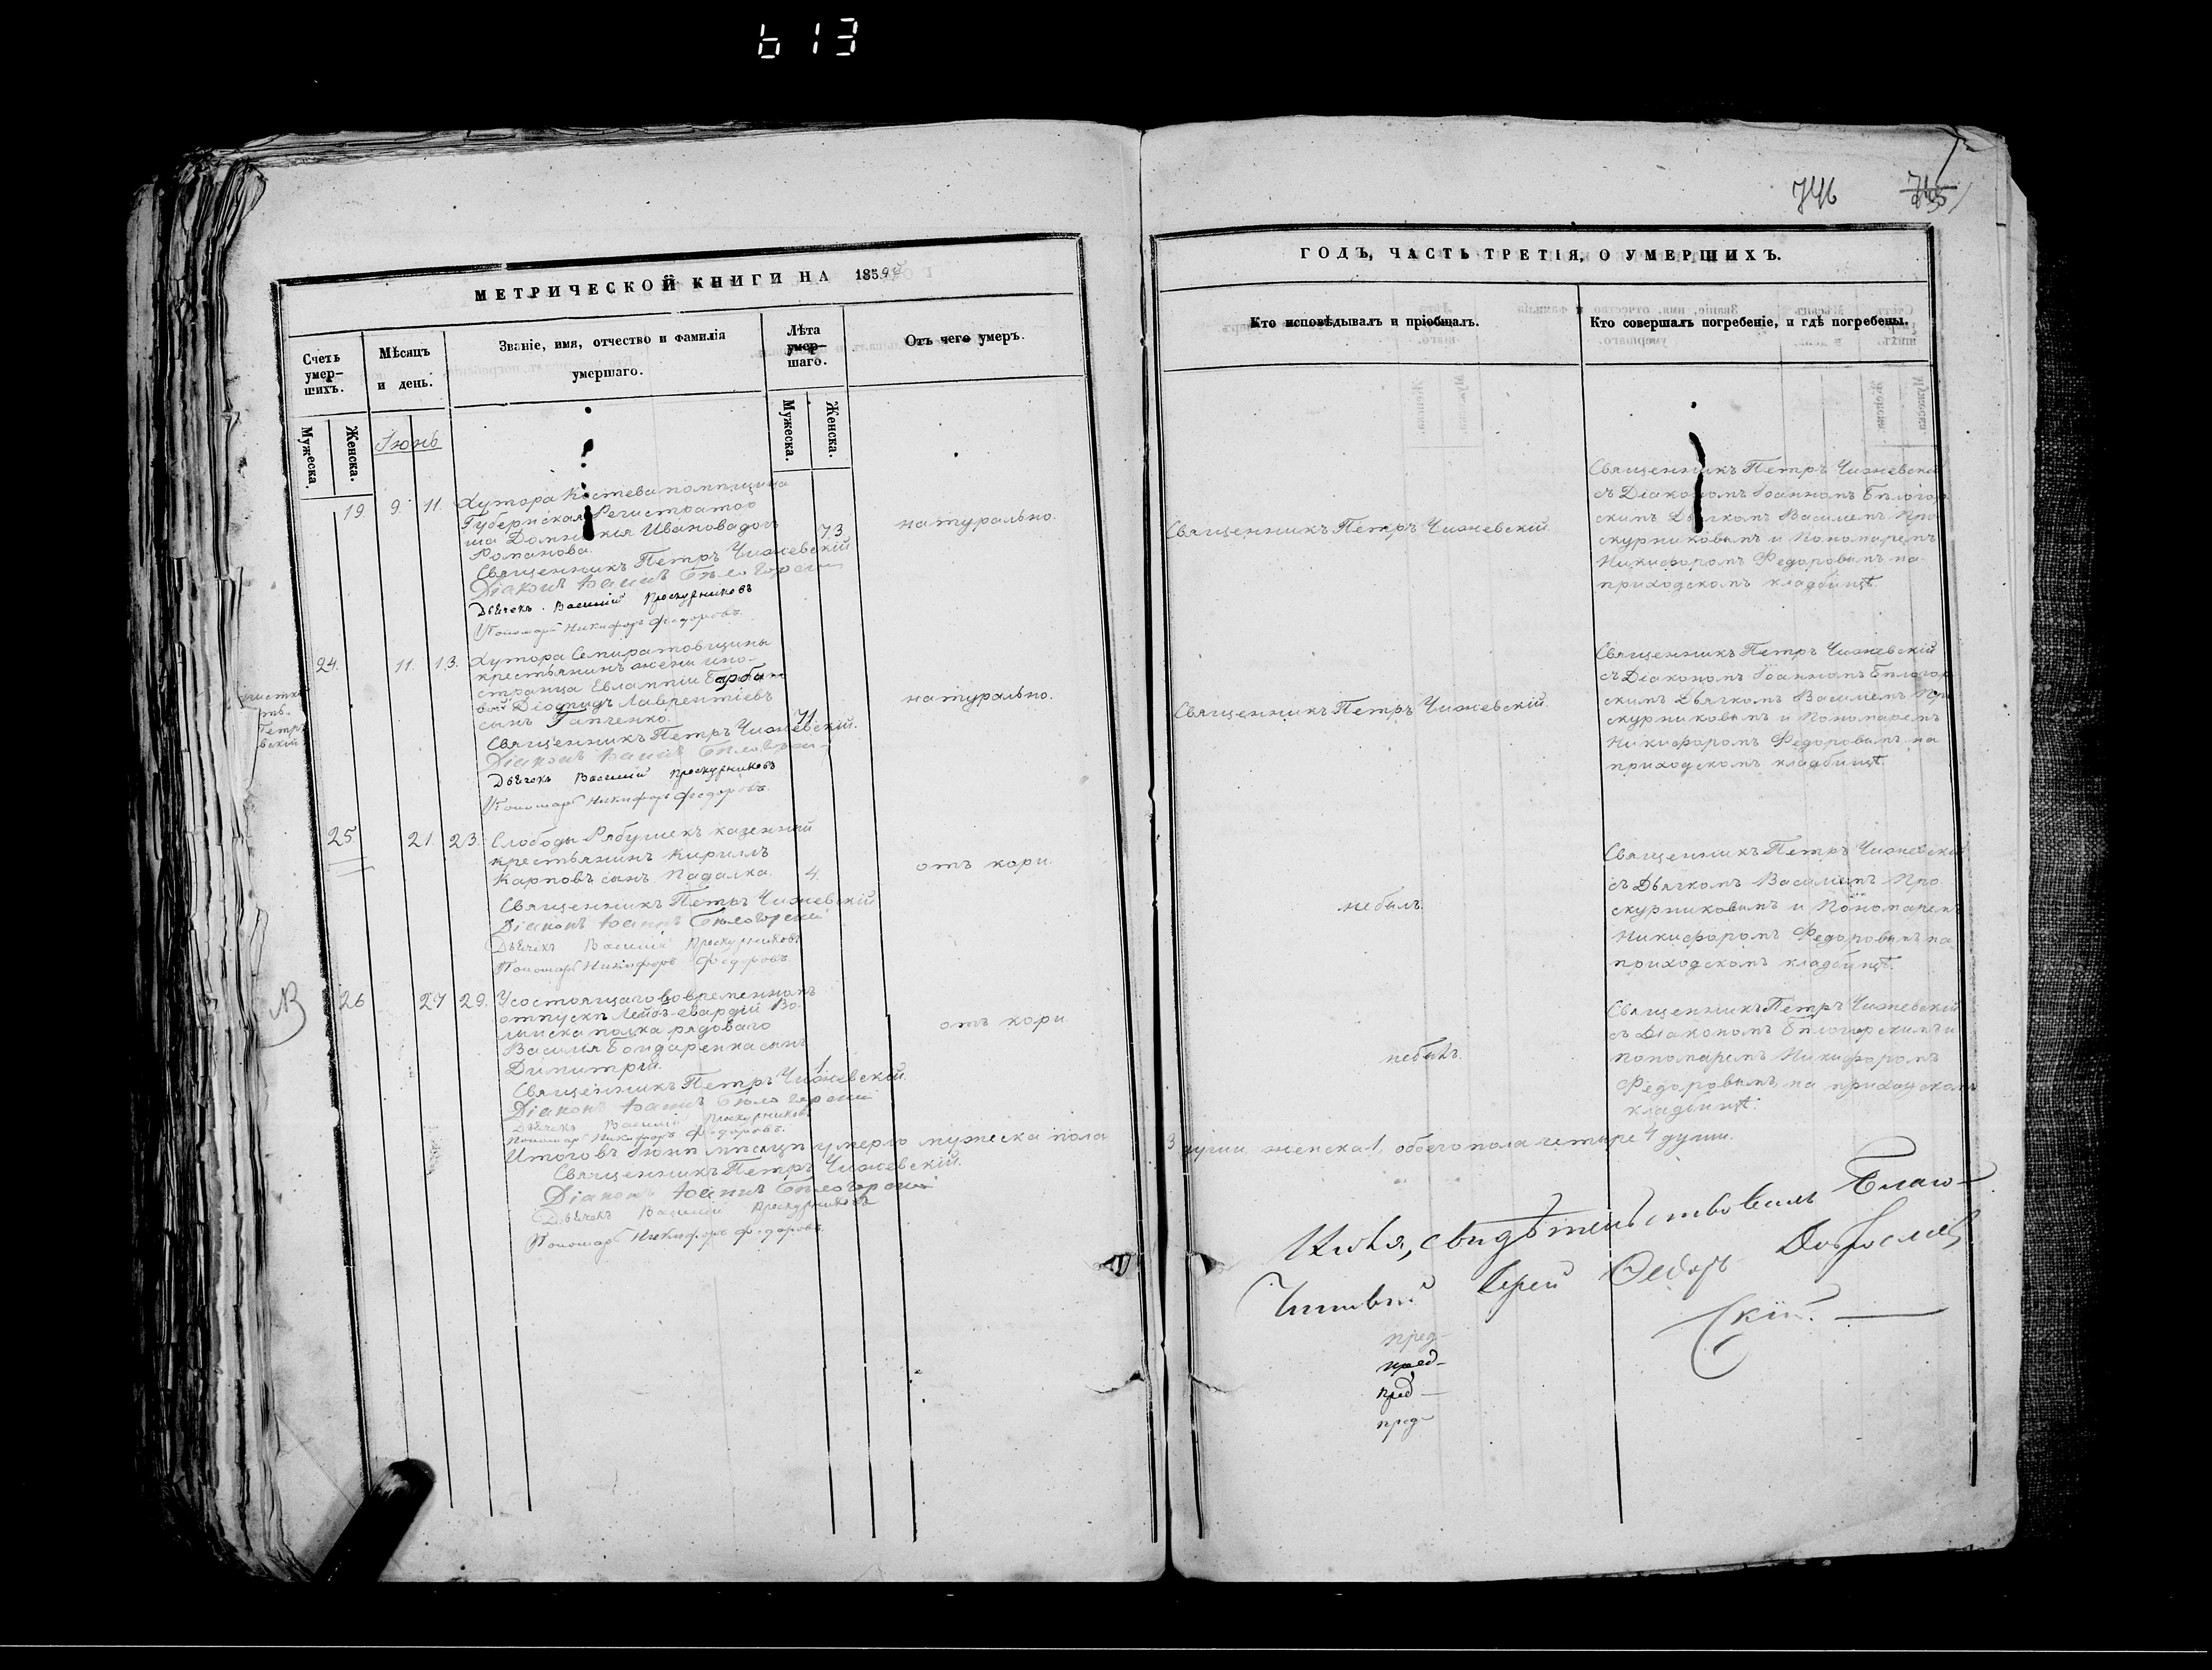 613
746
МЕТРИЧЕСКОЙ КНИГИ НА 1859й
Счетъ умер-шихъ.
Мѣсяцъ и день.
Званіе, имя, отчество и фамилія умершаго.
Лѣта умер-шаго.
Отъ чего умеръ.
Мужеска.
Женска.
Мужеска.
Женска.
Іюнь
19. 9. 11. Хутора Костева помпщица
Губернская Регистратор
ша Домникія Иванова доч
Романова.
73
натурально.
Священникъ Петръ Чижевскій.
Діаконъ Іоаннъ Бѣлогорскій
Дьячекъ Василій Проскурниковъ
Пономарь Никифоръ Федоровъ.
24. 11. 13. Хутора Семиратовщины
крестьянинъ жены ино-
странца Евлампіи Барба
вой Діомидъ Лаврентіевъ
сынъ Гапченко.
71
натурально.
Священникъ Петръ Чижевскій.
Діаконъ Іоаннъ Бѣлогорскій
Дьячекъ Василій Проскурниковъ
Пономарь Никифоръ Федоровъ.
25 21. 23. Слободы Рябушекъ казенный
крестьянинъ Кириллъ
Карповъ сынъ Падалка. 4.
отъ кори.
Священникъ Петръ Чижевскій
Діаконъ Іоаннъ Бѣлогорскій
Дьячекъ Василій Проскурниковъ
Пономарь Никифоръ Федоровъ.
26 27 29. Усостоящаго вовременномъ
отпускѣ Лейбъ-гвардіи Во-
лынска полка рядоваго
Василія Бондаренка сынъ
Димитрій.
1
отъ кори
Священникъ Петръ Чижевскій.
Діаконъ Іоаннъ Бѣлогорскій
Дьячекъ Василій Проскурниковъ
Пономарь Никифоръ Федоровъ.
Итого въ Іюнѣ мѣсяцѣ умерло мужеска пола
Священникъ Петръ Чижевскій.
Діаконъ Іоаннъ Бѣлогорскій
Дьячекъ Василій Проскурниковъ
Пономарь Никифоръ Федоровъ.
ГОДЪ, ЧАСТЬ ТРЕТІЯ, О УМЕРШИХЪ.
Кто исповѣдывалъ и пріобщалъ.
Кто совершалъ погребеніе, и гдѣ погребены.
Священникъ Петръ Чижевскій
Священникъ Петръ Чижевскій
съ Діакономъ Іоанномъ Бѣлогор
скимъ Дьячкомъ Василіемъ Про
скурниковымъ и Пономаремъ
Никифоромъ Федоровымъ на
приходскомъ кладбищѣ.
Священникъ Петръ Чижевскій.
Священникъ Петръ Чижевскій
съ Діакономъ Іоанномъ Бѣлогор
скимъ Дьячкомъ Василіемъ Про
скурниковымъ и Пономаремъ
Никифоромъ Федоровымъ на
приходскомъ кладбищѣ.
небылъ.
Священникъ Петръ Чижевскій
съ Дьячкомъ Василіемъ Про
скурниковымъ и Пономаремъ
Никифоромъ Федоровымъ на
приходскомъ кладбищѣ.
небылъ.
Священникъ Петръ Чижевскій
съ Діакономъ Бѣлогорскимъ и
пономаремъ Никифоромъ
Федоровымъ, на приходском
кладбищѣ.
3 души женска 1, обоего пола четыре 4 души.
свидѣтельствовалъ Благо-
чинный Іерей Федоръ Доброслав
скій.
пред-
пред-
пред-
пред-